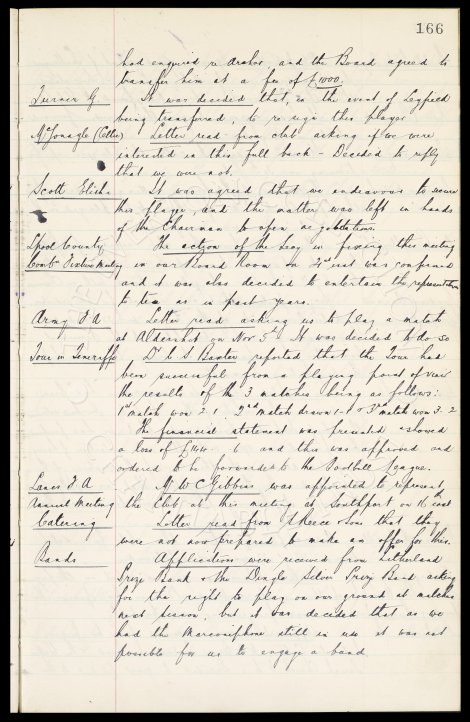 166
had enquired re Archer, and the Board agreed to
transfer him at a fee of £1000.
Turner G. It was decided that, in the event of Leyfield
being transferred, to re sign this player
McGonagle (Celtic) Letter read from club asking if we were
interested in this full back - Decided to reply
that we were not.
Scott Elisha It was agreed that we endeavour to secure
this player, and the matter was left in hands
of the Chairman to open negotiations.
Lpool County The action of the Secy in fixing this meeting
Comb. Fixture Meeting in our Board Room on 21st inst was confirmed
and it was also decided to entertain the representatives
to tea as in past years.
Army F A Letter read asking us to play a match
at Aldershot on Nov 5th. It was decided to do so
Tour in Teneriffe Dr C S Baxter reported that the Tour had
been successful from a playing point of view
the results of the 3 matches being as follows:
1st match won 2.1, 2nd match drawn 1-1 & 3rd match won 3-2
The financial statement was presented & showed
a loss of and this was approved and
ordered to be forwarded to the Football League.
Lancs F A Mr W C Gibbins was appointed to represent
Annual Meeting the Club at this meeting at Southport on inst
Catering Letter read from Reece & Sons that they
were not now prepared to make an offer for this.
Bands Applications were received from Litherland
Prize Band & the Dingle Silver Prize Band asking
for the right to play on our ground at matches
next season, but it was decided that as we
had the Marconiphone still in use it was not
possible for us to engage a band